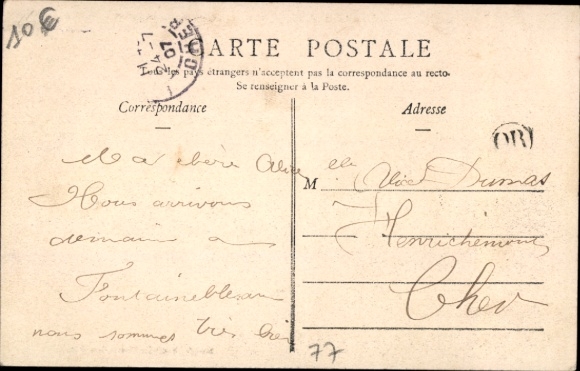 10€
CARTE POSTALE
Tous les pays étrangers n'acceptent pas la correspondance au recto.
Se renseigner à la Poste.
Correspondance
Adresse
24-7
07
CHER
OR
Ma chère Alice
Nous arrivons
demain a
Fontainebleau
nous sommes très bien
M elle Alice Dumas
Henrichemont
Cher
77